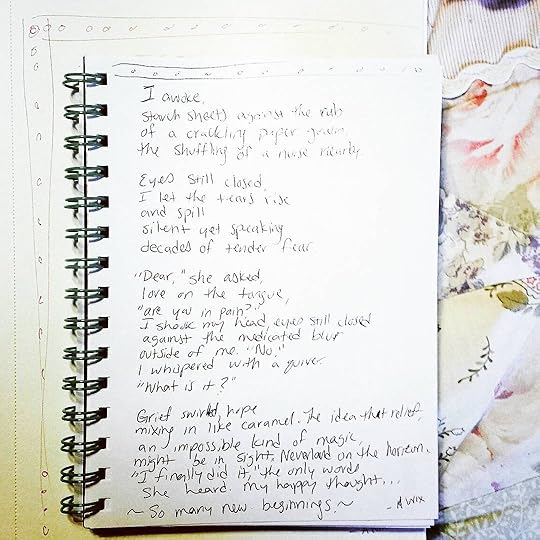 I awoke,
starch sheets against the rub
of a crackling paper gown,
the shuffling of a nurse nearby.
Eyes still closed,
I let the tears rise
and spill
silent yet speaking
decades of tender fear.
"Dear," she asked,
love on the tongue,
"are you in pain?"
I shook my head, eyes still closed
against the medicated blur
outside of me. "No,"
I whispered with a quiver.
"What is it?"
Grief swirled, hope
mixing in like caramel. The idea that relief,
an impossible kind of magic,
might be in sight, Neverland on the horizon.
"I finally did it," the only words
she heard. my happy thought...
~ So many new beginnings. ~
- A Wix